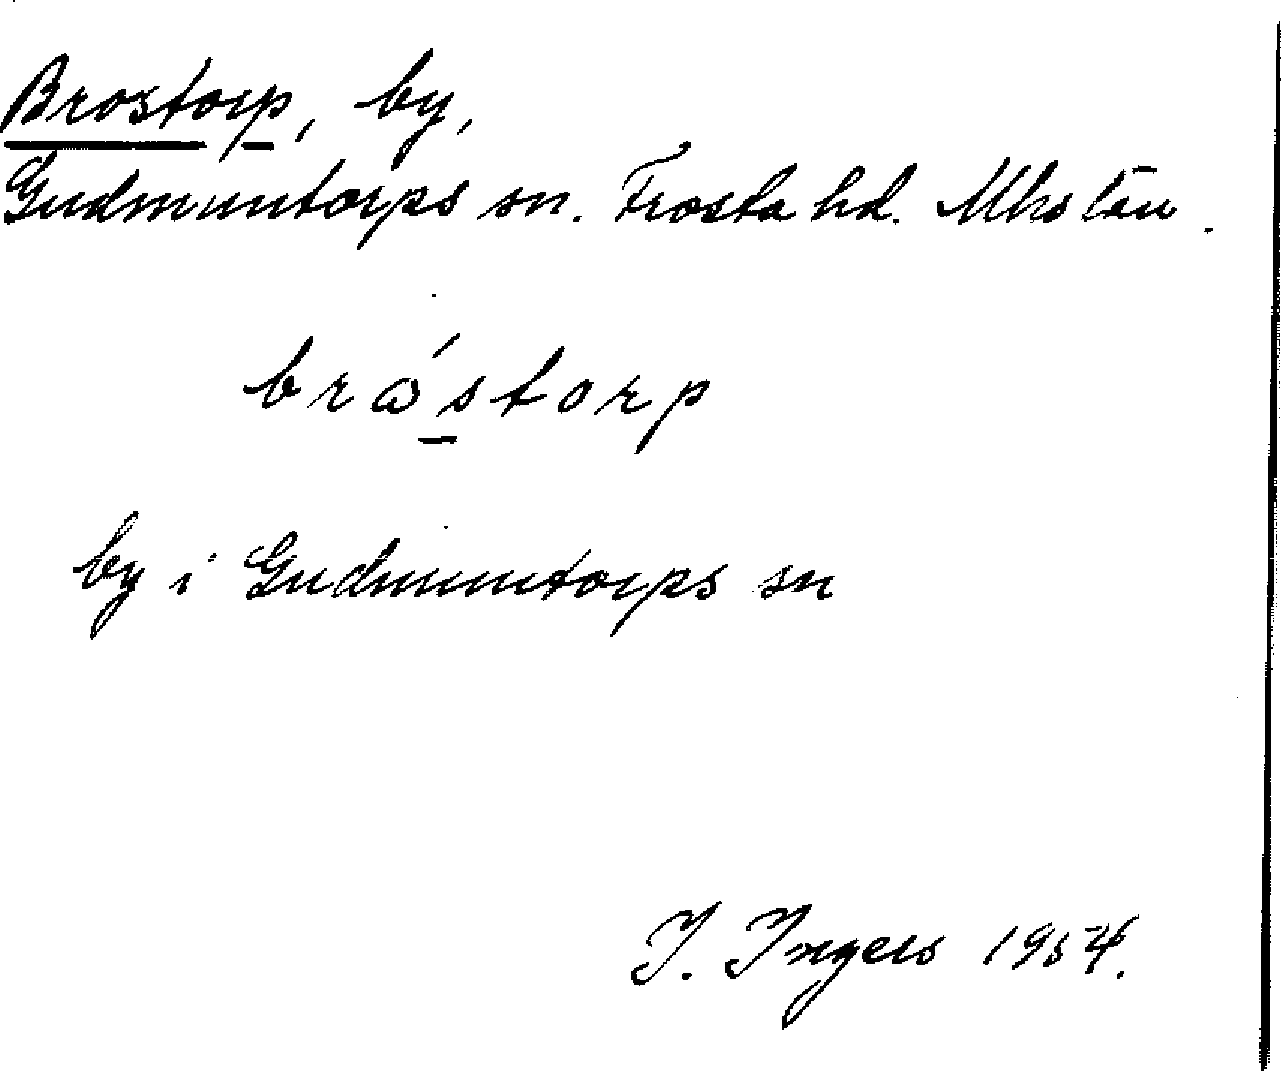 Brostorp, by,
Gudmuntorps sn. Frosta hd. Mhs län.
brω´s̱torp
by i Gudmuntorps sn
I. Ingers 1954.